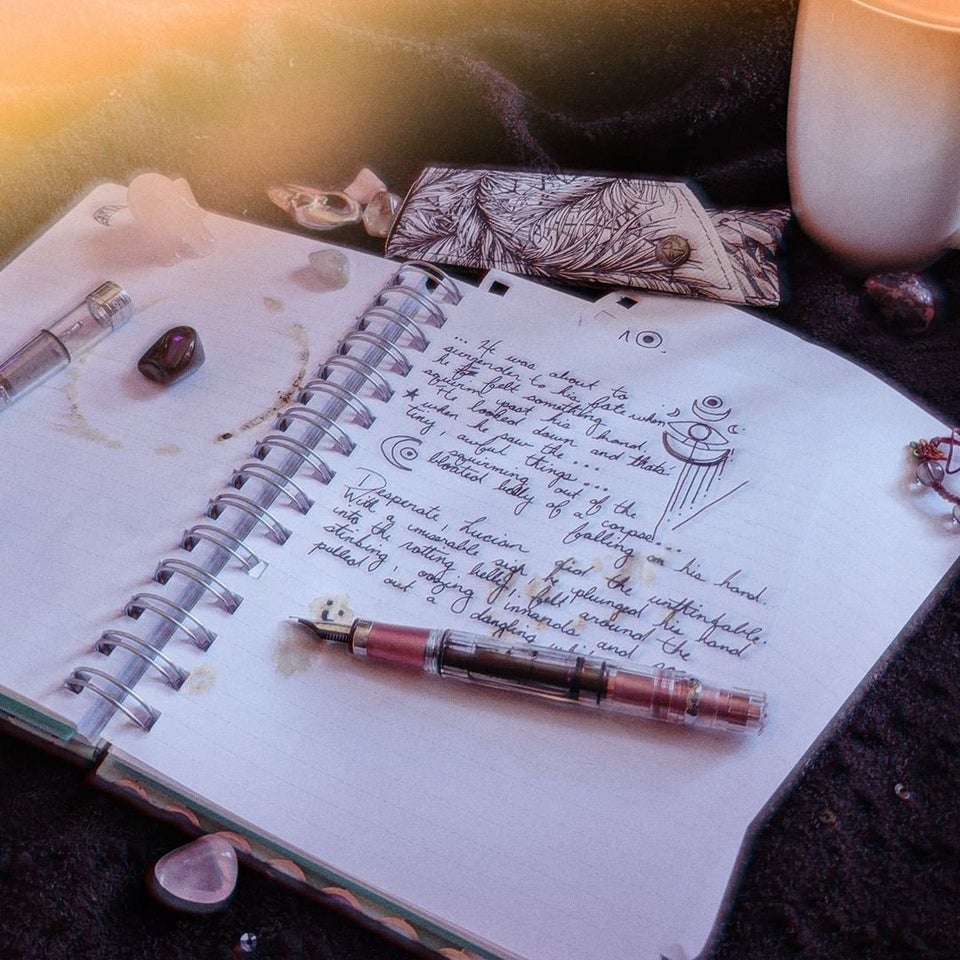 ... He was about to
surrender to his fate when
he felt something
squirm past his hand.
He looked down and that's
when he saw the ...
tiny, awful things ...
squirming out of the
bloated belly of a corpse ...
falling on his hand.
Desperate, Lucian did the unthinkable.
With a miserable sigh, he plunged his hand
into the rotting belly, felt around the
stinking, oozing innards and
pulled out a dangling